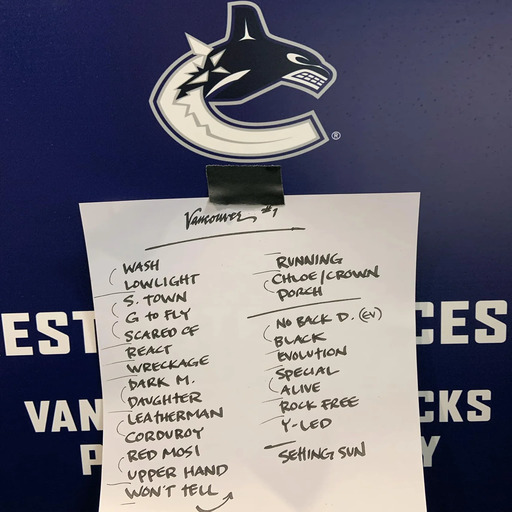 ®
Vancouver #1
WASH
LOWLIGHT
S. TOWN
G to FLY
SCARED OF
REACT
WRECKAGE
DARK M.
DAUGHTER
LEATHERMAN
CORDUROY
RED MOS1
UPPER HAND
WON'T TELL
RUNNING
CHLOE/CROWN
PORCH
NO BACK D. (EV)
BLACK
EVOLUTION
SPECIAL
ALIVE
ROCK FREE
Y-LED
SETTING SUN
EST CES
VAN CKS
P Y